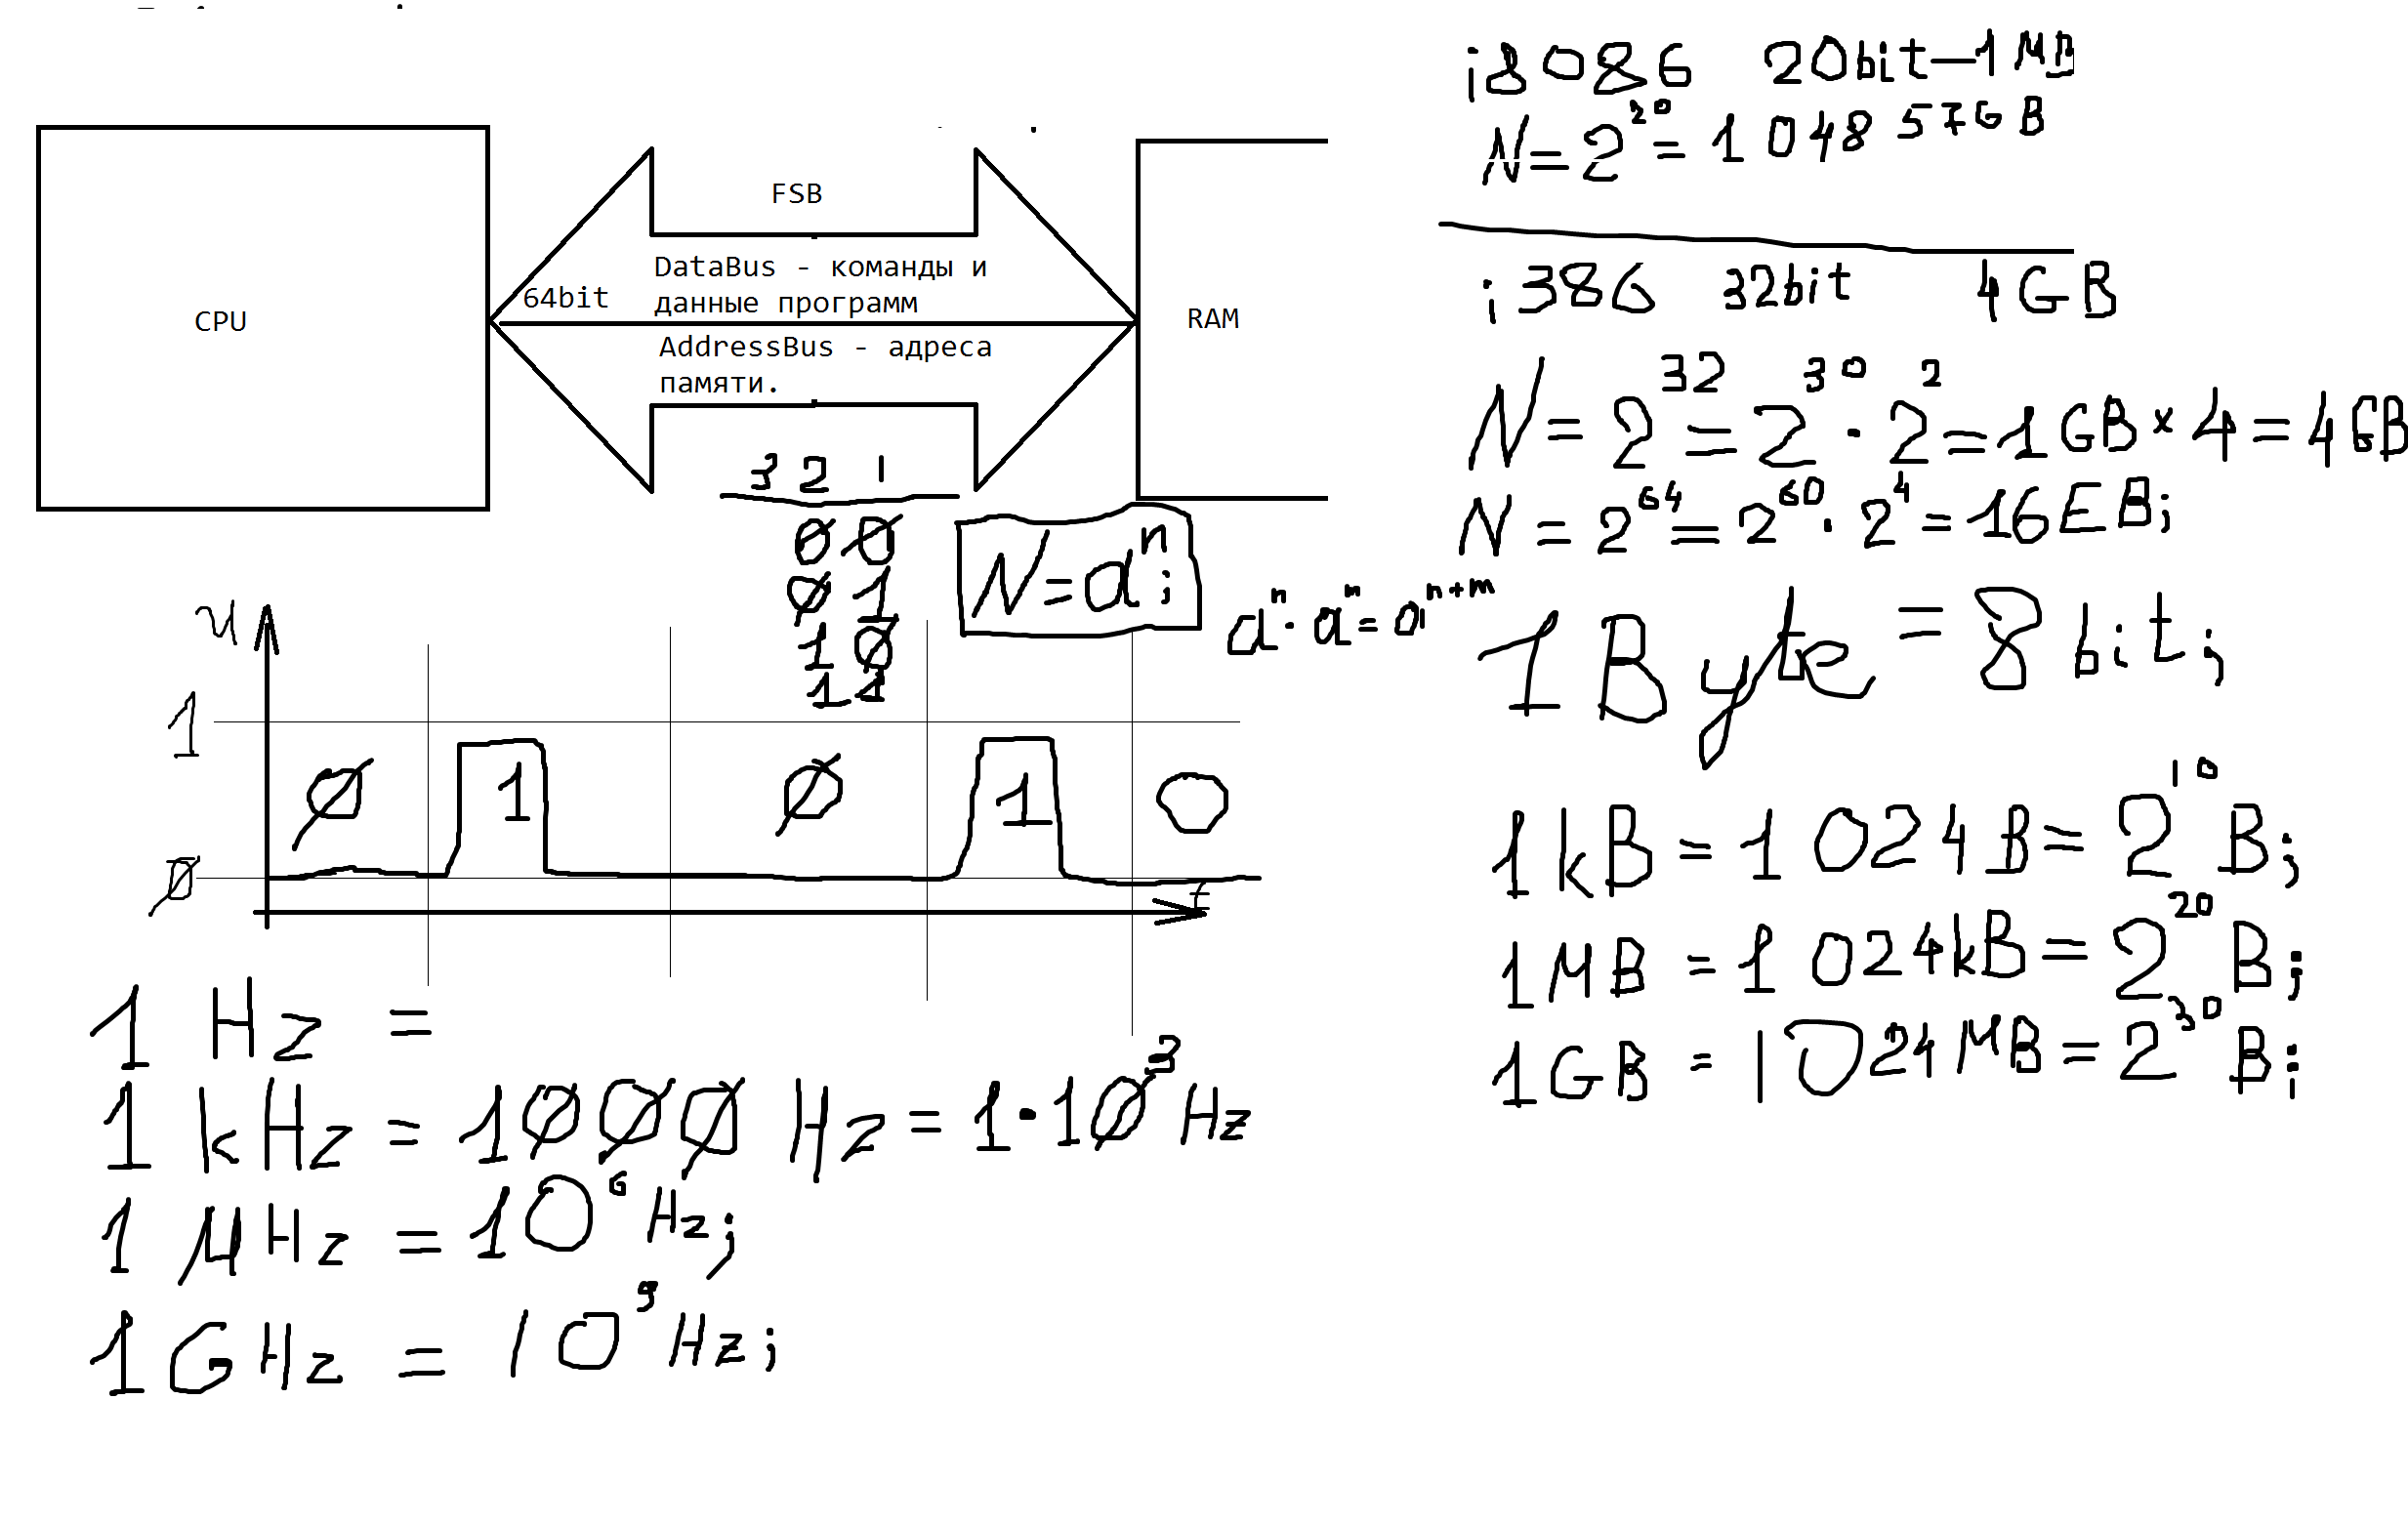 CPU
FSB
64bit
DataBus - команды и
данные программ
AddressBus - адреса
памяти.
RAM
3 2 1
0 0
0 1
1 0
1 1
N = a^n;
a^n · a^m = a^n+m
U
1
0
0 1 0 1 0
t
1 Hz =
1 kHz = 1000 Hz = 1·10^3 Hz
1 MHz = 10^6 Hz;
1 GHz = 10^9 Hz;
i8086 20bit – 1 MB
N = 2^20 = 1 048 576 B
i386 32bit 4GB
N = 2^32 = 2^30 · 2^2 = 1GB × 4 = 4GB
N = 2^64 = 2^60 · 2^4 = 16EB;
1 Byte = 8 bit;
1 kB = 1 024B = 2^10 B;
1 MB = 1 024kB = 2^20 B;
1 GB = 1024MB = 2^30 B;